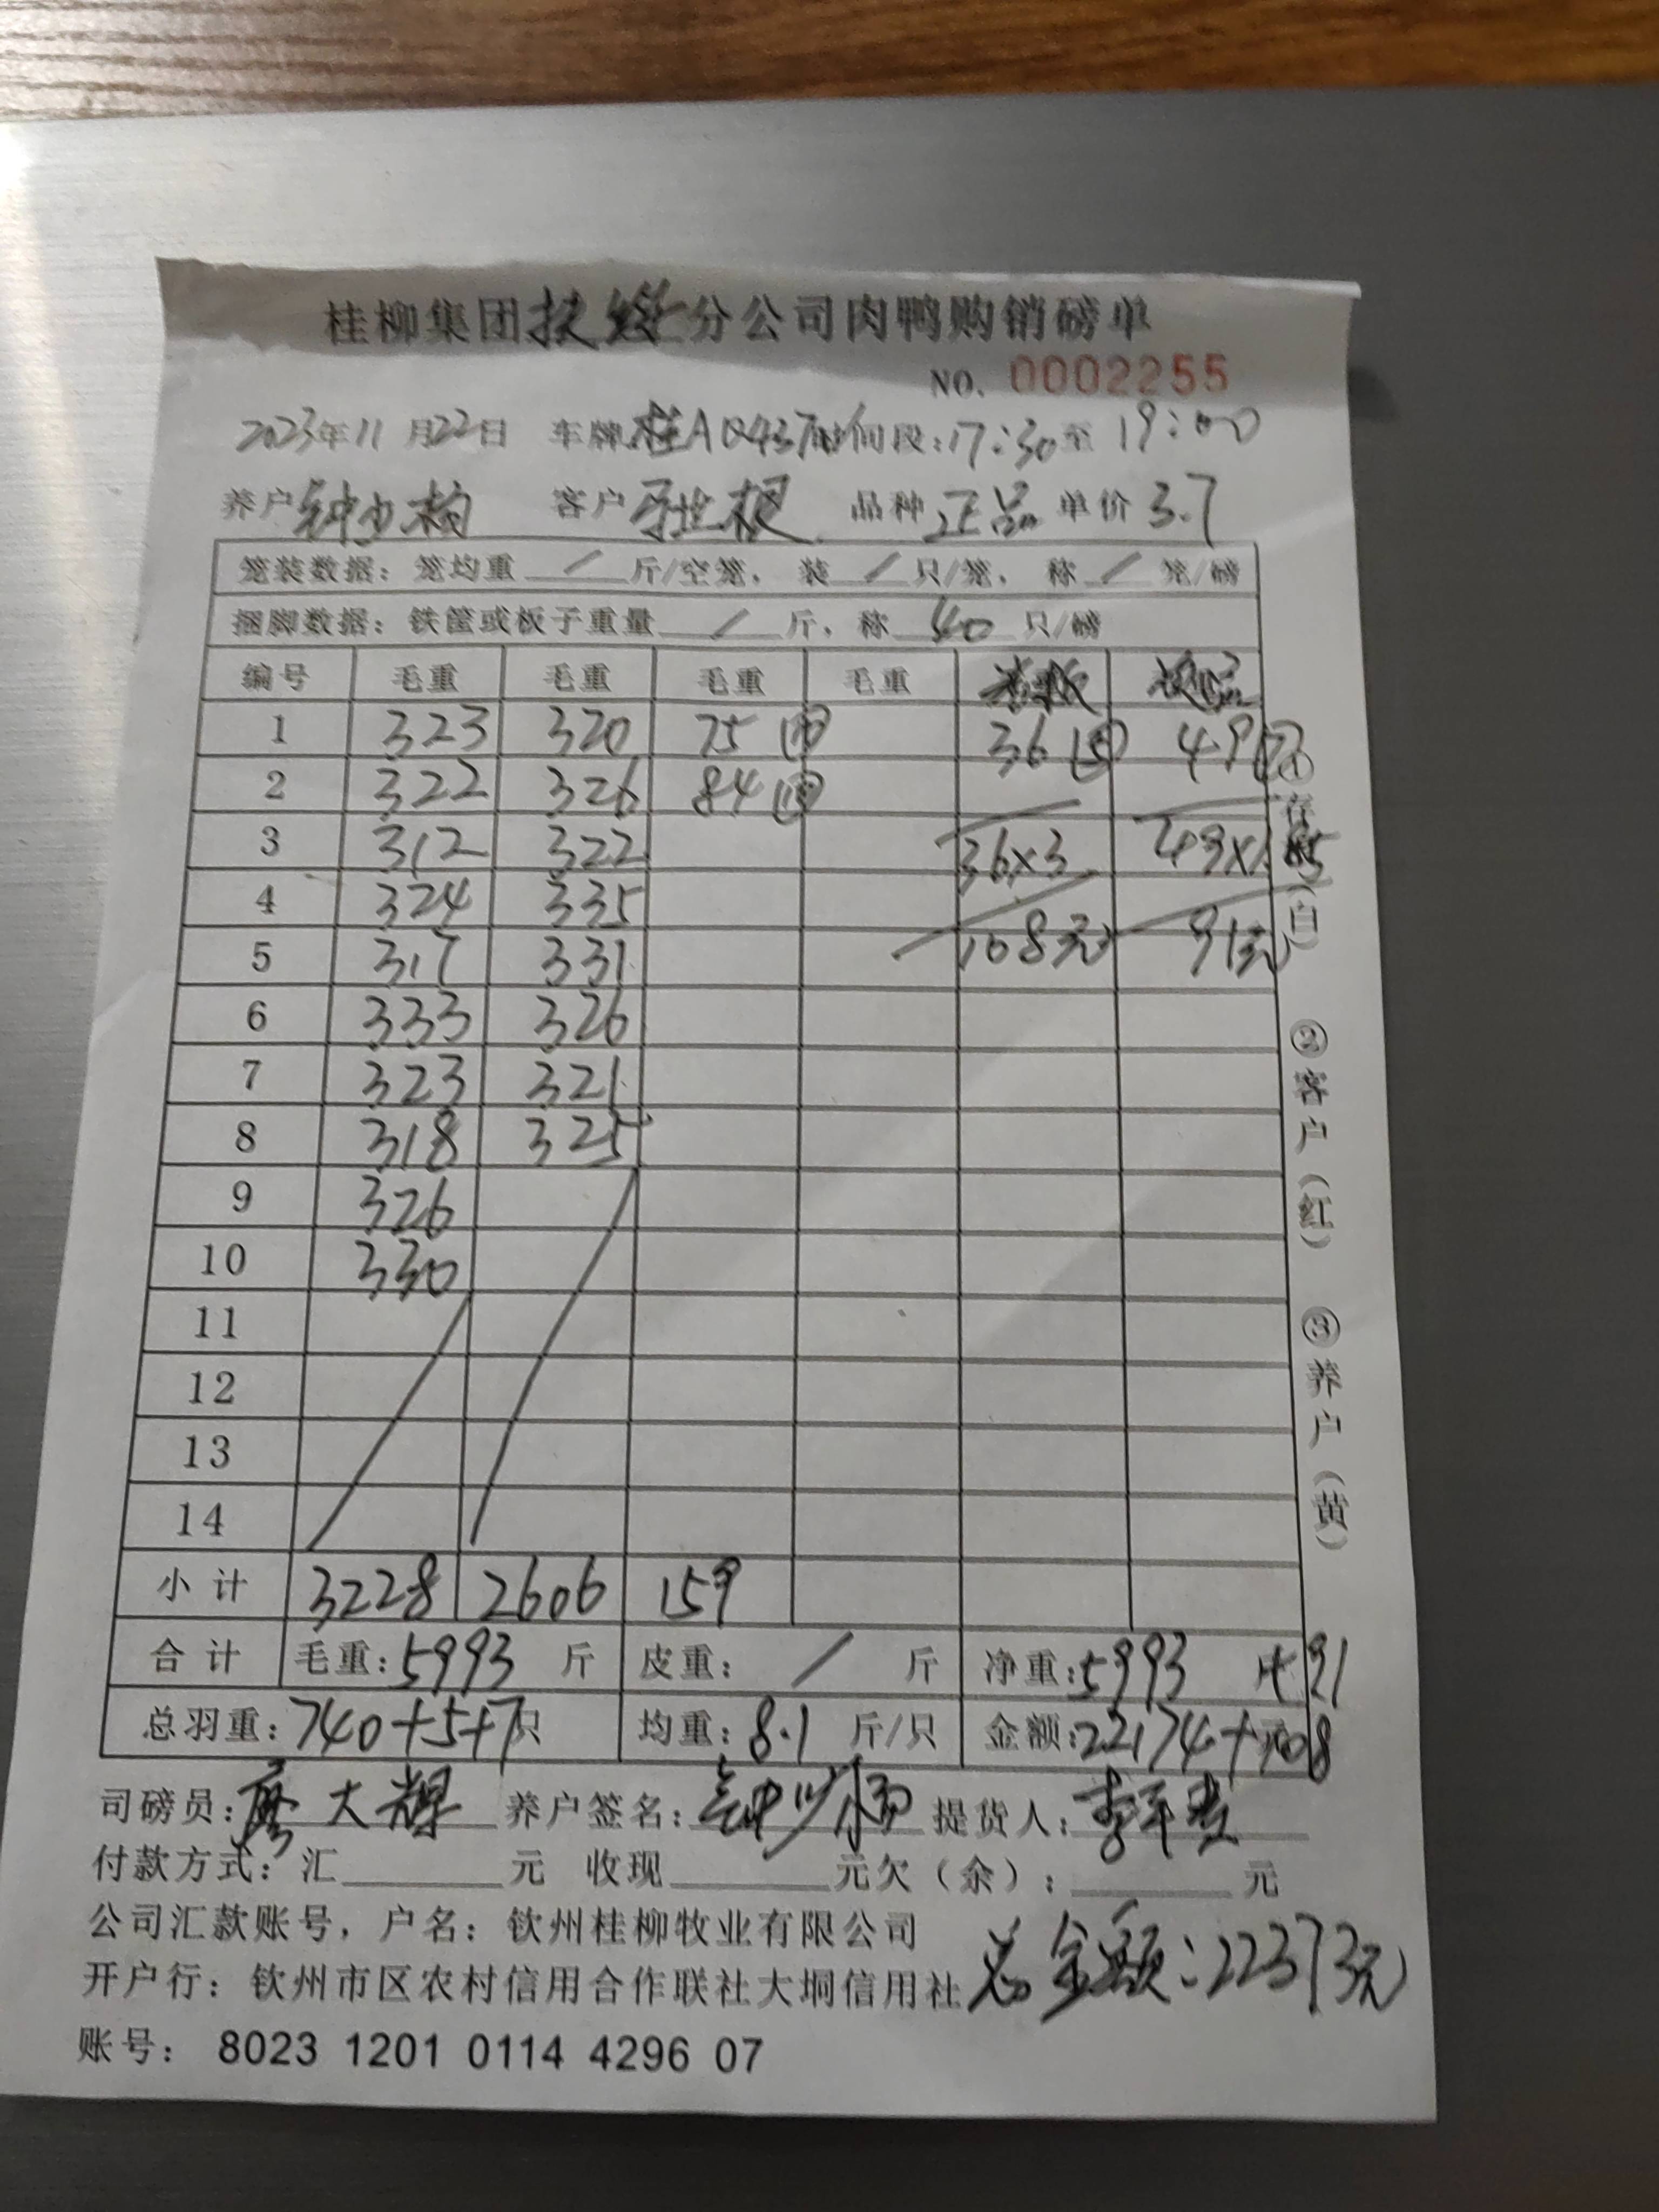 桂柳集团扶绥分公司肉鸭购销磅单
NO. 0002255
2023年11月22日 车牌桂A 时间段:17:30至19:00
养户钟少杨 客户 根 品种正品 单价3.7
笼装数据: 笼均重 / 斤/空笼, 装 / 只/笼, 称 / 笼/磅
捆脚数据: 铁筐或板子重量 / 斤, 称 40 只/磅
编号 毛重 毛重 毛重 毛重
1 323 320 75 36 (5) 49 (7)
2 322 326 84
3 312 322 36×3 49×1.85
4 324 335
5 317 331 108元 91元
6 333 326
7 323 321
8 318 325
9 326
10 330
11
12
13
14
小计 3228 2606 159
合计 毛重:5993 斤 皮重: / 斤 净重:5993 +91
总羽重:740+5+7只 均重:8.1 斤/只 金额:22174+108
司磅员:廖大辉 养户签名:钟少杨 提货人:
付款方式: 汇 元 收现 元欠(余): 元
公司汇款账号, 户名: 钦州桂柳牧业有限公司
开户行: 钦州市区农村信用合作联社大垌信用社
总金额:22373元
账号: 8023 1201 0114 4296 07
①存根(白) ②客户(红) ③养户(黄)